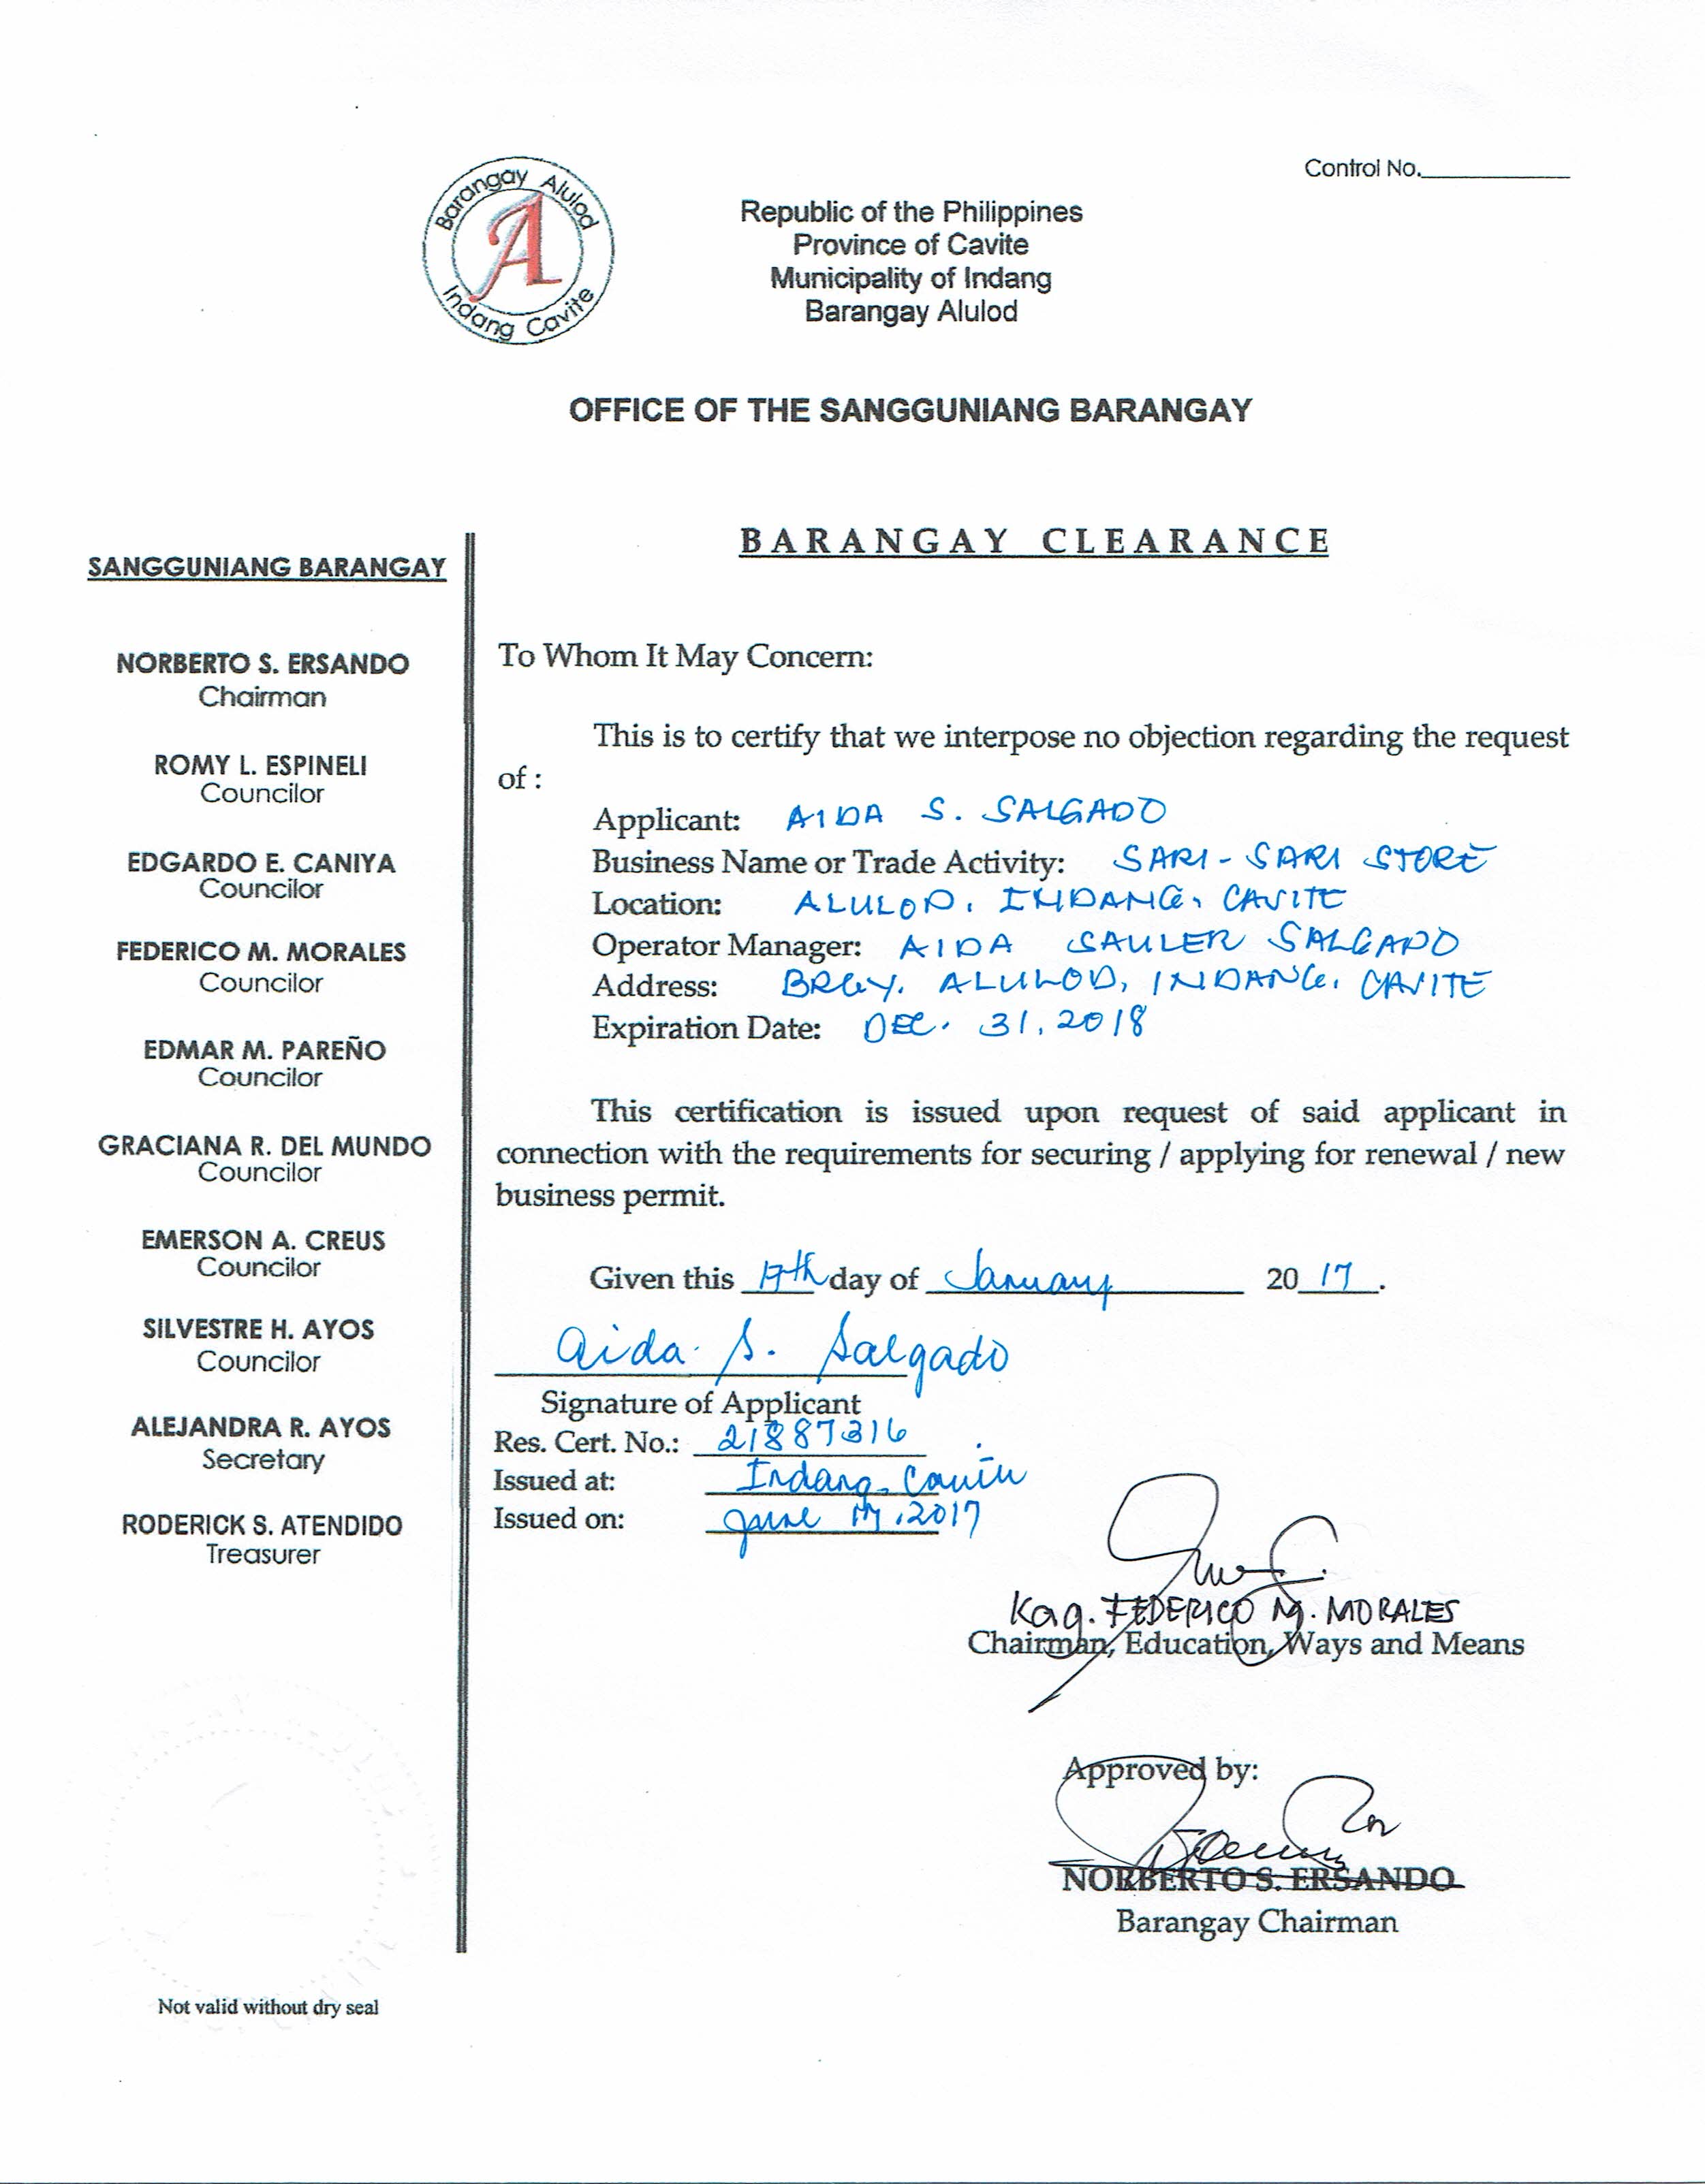 Control No.
Barangay Alulod
A
Indang Cavite
Republic of the Philippines
Province of Cavite
Municipality of Indang
Barangay Alulod
OFFICE OF THE SANGGUNIANG BARANGAY
SANGGUNIANG BARANGAY
NORBERTO S. ERSANDO
Chairman
ROMY L. ESPINELI
Councilor
EDGARDO E. CANIYA
Councilor
FEDERICO M. MORALES
Councilor
EDMAR M. PAREÑO
Councilor
GRACIANA R. DEL MUNDO
Councilor
EMERSON A. CREUS
Councilor
SILVESTRE H. AYOS
Councilor
ALEJANDRA R. AYOS
Secretary
RODERICK S. ATENDIDO
Treasurer
Not valid without dry seal
BARANGAY CLEARANCE
To Whom It May Concern:
This is to certify that we interpose no objection regarding the request
of :
Applicant: AIDA S. SALGADO
Business Name or Trade Activity: SARI-SARI STORE
Location: ALULOD, INDANG, CAVITE
Operator Manager: AIDA SAULER SALGADO
Address: BRGY. ALULOD, INDANG, CAVITE
Expiration Date: DEC. 31, 2018
This certification is issued upon request of said applicant in
connection with the requirements for securing / applying for renewal / new
business permit.
Given this 17th day of January 2017.
Aida S. Salgado
Signature of Applicant
Res. Cert. No.: 21887316
Issued at: Indang, Cavite
Issued on: June 2017
Kag. FEDERICO M. MORALES
Chairman, Education, Ways and Means
Approved by:
NORBERTO S. ERSANDO
Barangay Chairman